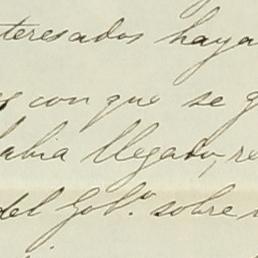 teresados haya
con que se
habia llegado, re
del Gob.º sobre